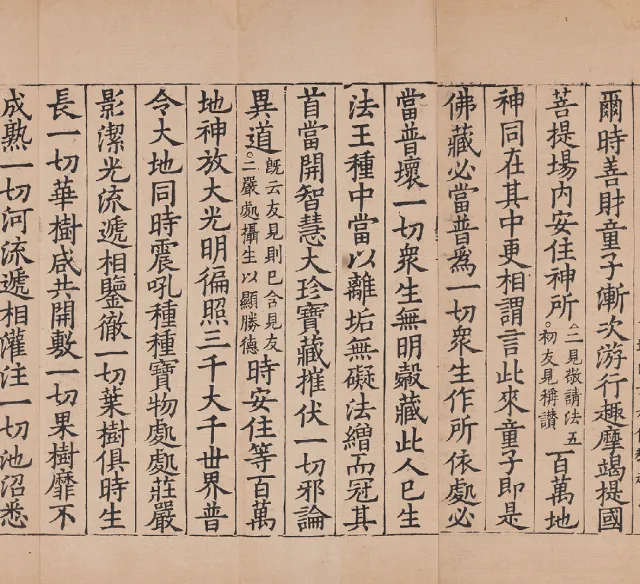 爾時善財童子漸次游行趣摩竭提國
菩提場内安住神所。二見敬請法五。初友見稱讃百萬地
神同在其中更相謂言此來童子即是
佛藏必當普爲一切衆生作所依處必
當普壞一切衆生無明㲉藏此人已生
法王種中當以離垢無礙法繒而冠其
首當開智慧大珍寶藏摧伏一切邪論
異道旣云友見則已含見友。二嚴處攝生以顯勝德時安住等百萬
地神放大光明徧照三千大千世界普
令大地同時震吼種種寶物處處莊嚴
影潔光流遞相鑒徹一切葉樹俱時生
長一切華樹咸共開敷一切果樹靡不
成熟一切河流遞相灌注一切池沼悉